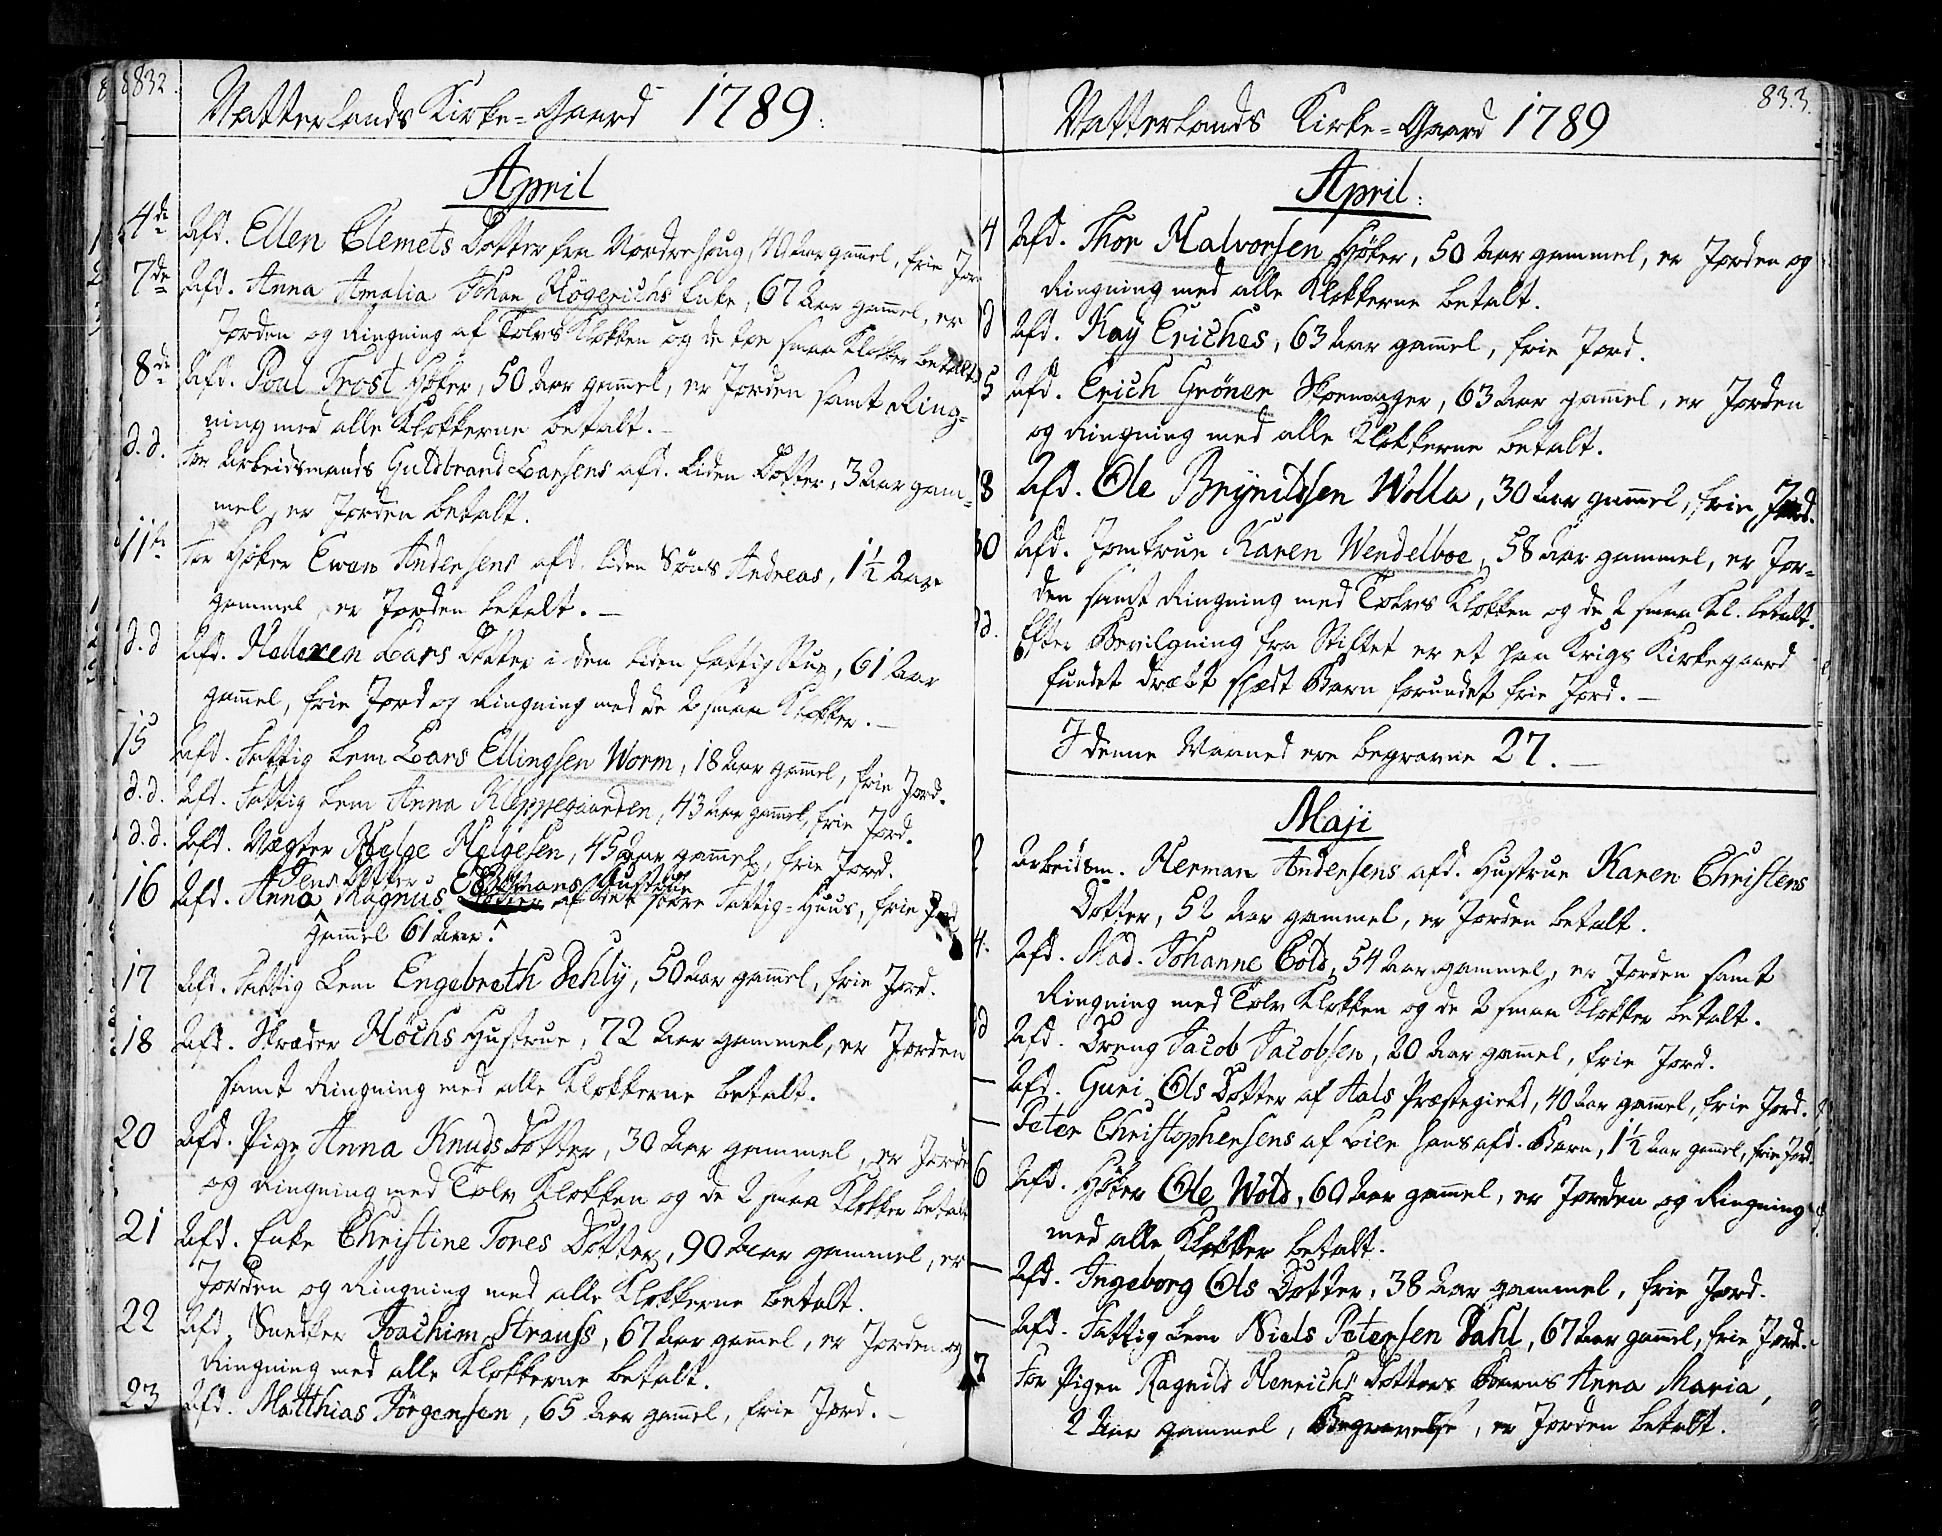 832.
Vatterlands Kirke-Gaard 1789.
April
4de Afd. Ellen Clemets Dotter fra Nordrehoug, 40 Aar gam̄el, frie Jor
7de Afd. Anna Amalia Johan Högerichs Enke, 67 Aar gam̄el, er
Jorden og Ringning af Tolvs Klokken og de toe smaa Klokker betalt.
8de Afd. Poul Trost Höker, 50 Aar gam̄el, er Jorden samt Ring-
ning med alle Klokkerne betalt.
d.d. For Arbeidsmands Guldbrand Larsens afd. liden Dotter, 3 Aar gam-
mel, er Jorden betalt.
11te For Höker Ewen Andersens afd. liden Søns Andreas, 1½ Aar
gammel, er Jorden betalt. —
d.d Afd. Lars Dotter i den liden fattig Stue, 61 Aar
gam̄el, frie Jord og Ringning med de 2 smaa Klokker. —
15 Afd. Fattig Lem Lars Ellingsen Worm, 18 Aar gam̄el, frie Jord.
d.d. Afd. Fattig Lem Anna Kleppegaarden, 43 Aar gam̄el, frie Jord.
d.d. Afd. Vægter Helge Helgesen, 45 Aar gam̄el, frie Jord.
Jens Dotter Hustrue
16 Afd. Anna Magnus af det store Fattig-Huus, frie Jord
Gam̄el 61 Aar.
17 Afd. Fattig Lem Engebreth Dehlÿ, 50 Aar gam̄el, frie Jord.
18 Afd. Skræder Höchs Hustrue, 72 Aar gammel, er Jorden
samt Ringning med alle Klokkerne betalt.
20 Afd. Pige Anna Knuds Dotter, 30 Aar gammel, er Jorde
og Ringning med Tolv Klokken og de 2 smaa Klokker betalt
21 Afd. Enke Christine Tores Dotter, 90 Aar gammel, er
Jorden og Ringning med alle Klokkerne betalt.
22 Afd. Snedker Joachim Strauss, 67 Aar gam̄el, er Jorden og
Ringning med alle Klokkerne betalt.
23 Afd. Matthias Jörgensen, 65 Aar gam̄el, frie Jord. —
833.
Vatterlands Kirke-Gaard 1789
April.
4 Afd. Thor Halvorsen Höker, 50 Aar gammel, er Jorden og
Ringning med alle Klokkerne betalt.
d Afd. Kaÿ Eriches, 63 Aar gam̄el, frie Jord.
5 Afd. Erich Gröner Skoemager, 63 Aar gam̄el, er Jorden
og Ringning med alle Klokkerne betalt.
8 Afd. Ole Brÿnildsen Wolla, 30 Aar gam̄el, frie Jord.
30 Afd. Jomfrue Karen Wendelboe, 58 Aar gammel, er Jor-
den samt Ringning med Tolvs Klokken og de 2 smaa Kl. betalt.
d. Efter Bevilgning fra Stiftet er et paa Krigs Kirkegaard
fundet dræbt spædt Barn forundet frie Jord. —
I denne Maaned ere begravne 27. —
Maji
Arbeidsm. Herman Andersens afd. Hustrue Karen Christens
Dotter, 52 Aar gammel, er Jorden betalt.
4. Afd. Mad. Johanne Cold, 54 Aar gammel, er Jorden samt
Ringning med Tolv Klokken og de 2 smaa Klokker betalt.
d Afd. Dreng Jacob Jacobsen, 20 Aar gam̄el, frie Jord.
— Afd. Guri Ols Dotter af Aals Præstegield, 40 Aar gam̄el, frie Jord.
— Peter Christophersens af Lier hans afd. Barn, 1½ Aar gam̄el, frie Jord.
6 Afd. Höker Ole Wold, 60 Aar gam̄el, er Jorden og Ringning
med alle Klokker betalt.
— Afd. Ingeborg Ols Dotter, 38 Aar gammel, frie Jord.
— Afd. Fattig Lem Niels Petersen Dahl, 67 Aar gam̄el, frie Jord.
7 For Pigen Ragnild Henrichs Dotters Barns Anna Maria,
2 Aar gammel, Begravelse, er Jorden betalt.